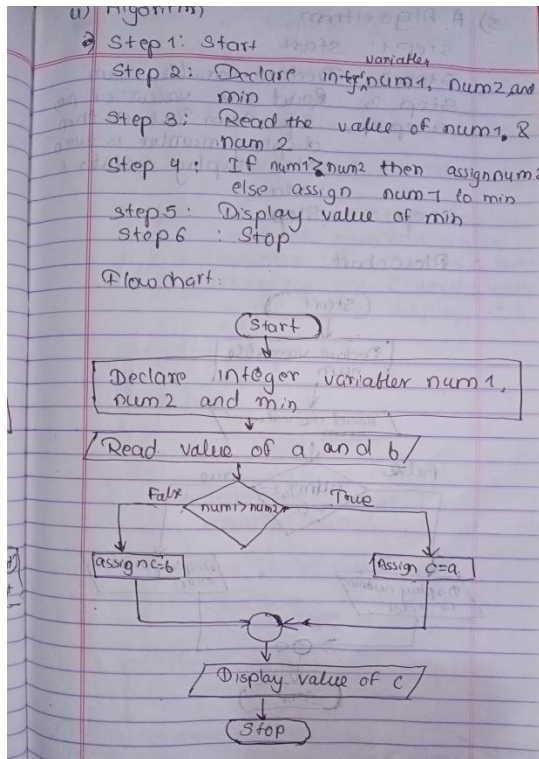 u) Algorithm)
Step 1: Start
variables
Step 2: Declare integer num1, num2, and
min
Step 3: Read the value of num1, &
num 2
Step 4: If num1 > num2 then assign num2
else assign num1 to min
step 5: Display value of min
Step 6 : Stop
Flowchart:
Start
Declare integer variables num1,
num2 and min
Read value of a and b
False num1>num2 True
assign c=b Assign c=a
Display value of c
Stop